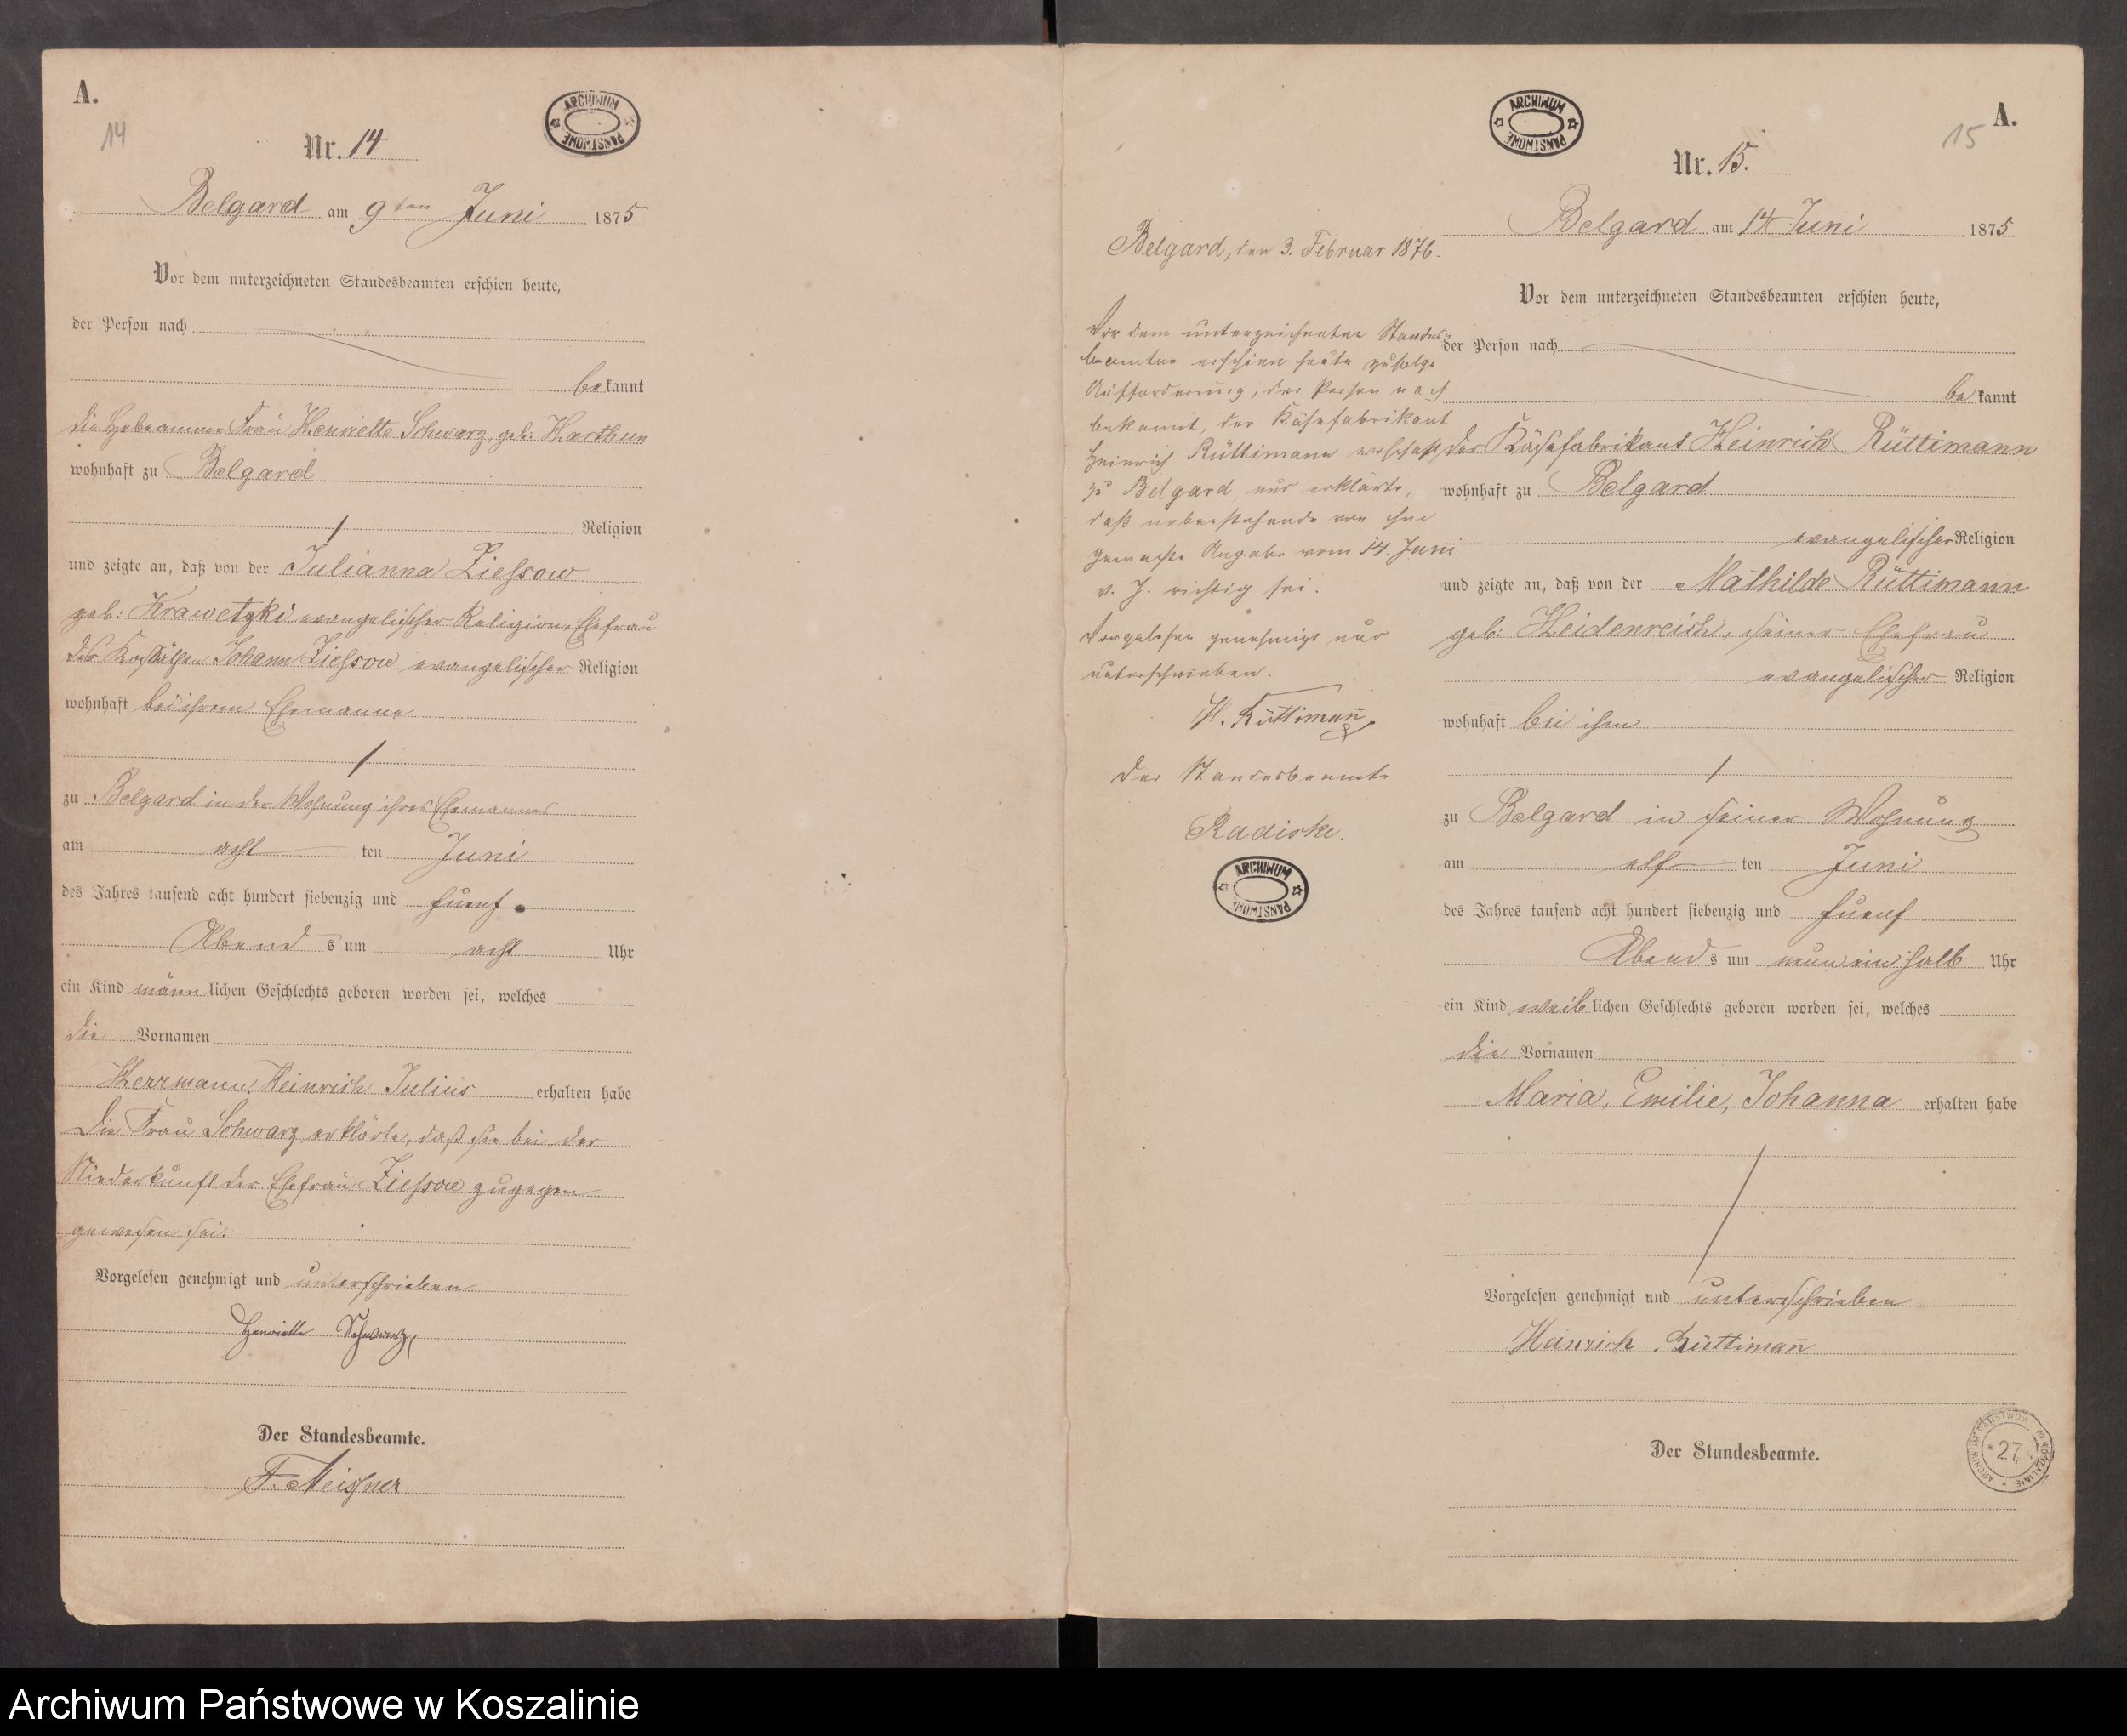 A.
14
ARCHIWUM PAŃSTWOWE
Nr. 14
Belgard am 9ten Juni 1875
Vor dem unterzeichneten Standesbeamten erschien heute,
der Person nach
bekannt
die Hebeamme Frau Henriette Schwarz, geb: Harthun
wohnhaft zu Belgard
Religion
und zeigte an, daß von der Julianna Ziessow
geb: Krawetzki evangelischer Religion, Ehefrau
des Johann Ziessow evangelischer Religion
wohnhaft bei ihrem Ehemanne
zu Belgard in der Wohnung ihres Ehemannes
am acht ten Juni
des Jahres tausend acht hundert siebenzig und fuenf
Abend s um acht Uhr
ein Kind männlichen Geschlechts geboren worden sei, welches
die Vornamen
Herrmann, Heinrich Julius erhalten habe
Die Frau Schwarz erklärte, daß sie bei der
Niederkunft der Ehefrau Ziessow zugegen
gewesen sei.
Vorgelesen genehmigt und unterschrieben
Henriette Schwarz,
Der Standesbeamte.
F. Meissner
ARCHIWUM PAŃSTWOWE
A.
15
Nr. 15.
Belgard am 14 Juni 1875
Vor dem unterzeichneten Standesbeamten erschien heute,
der Person nach
bekannt
der Käsefabrikant Heinrich Rüttimann
wohnhaft zu Belgard
evangelischer Religion
und zeigte an, daß von der Mathilde Rüttimann
geb: Heidenreich, seiner Ehefrau
evangelischer Religion
wohnhaft bei ihm
zu Belgard in seiner Wohnung
am elf ten Juni
des Jahres tausend acht hundert siebenzig und fuenf
Abend s um neun ein halb Uhr
ein Kind weiblichen Geschlechts geboren worden sei, welches
die Vornamen
Maria, Emilie, Johanna erhalten habe
Vorgelesen genehmigt und unterschrieben
Heinrich Rüttimañ
Der Standesbeamte.
Belgard, den 3. Februar 1876.
Vor dem unterzeichneten Standes-
beamten erschien heute zufolge
Aufforderung, der Person nach
bekannt, der Käsefabrikant
Heinrich Rüttimann wohnhaft
zu Belgard und erklärte,
daß nebenstehende von ihm
gemachte Angabe vom 14. Juni
v. J. richtig sei.
Vorgelesen genehmigt und
unterschrieben.
H. Rüttimañ
Der Standesbeamte
Radiske.
ARCHIWUM PAŃSTWOWE
ARCHIWUM PAŃSTWOWE W KOSZALINIE
27
Archiwum Państwowe w Koszalinie